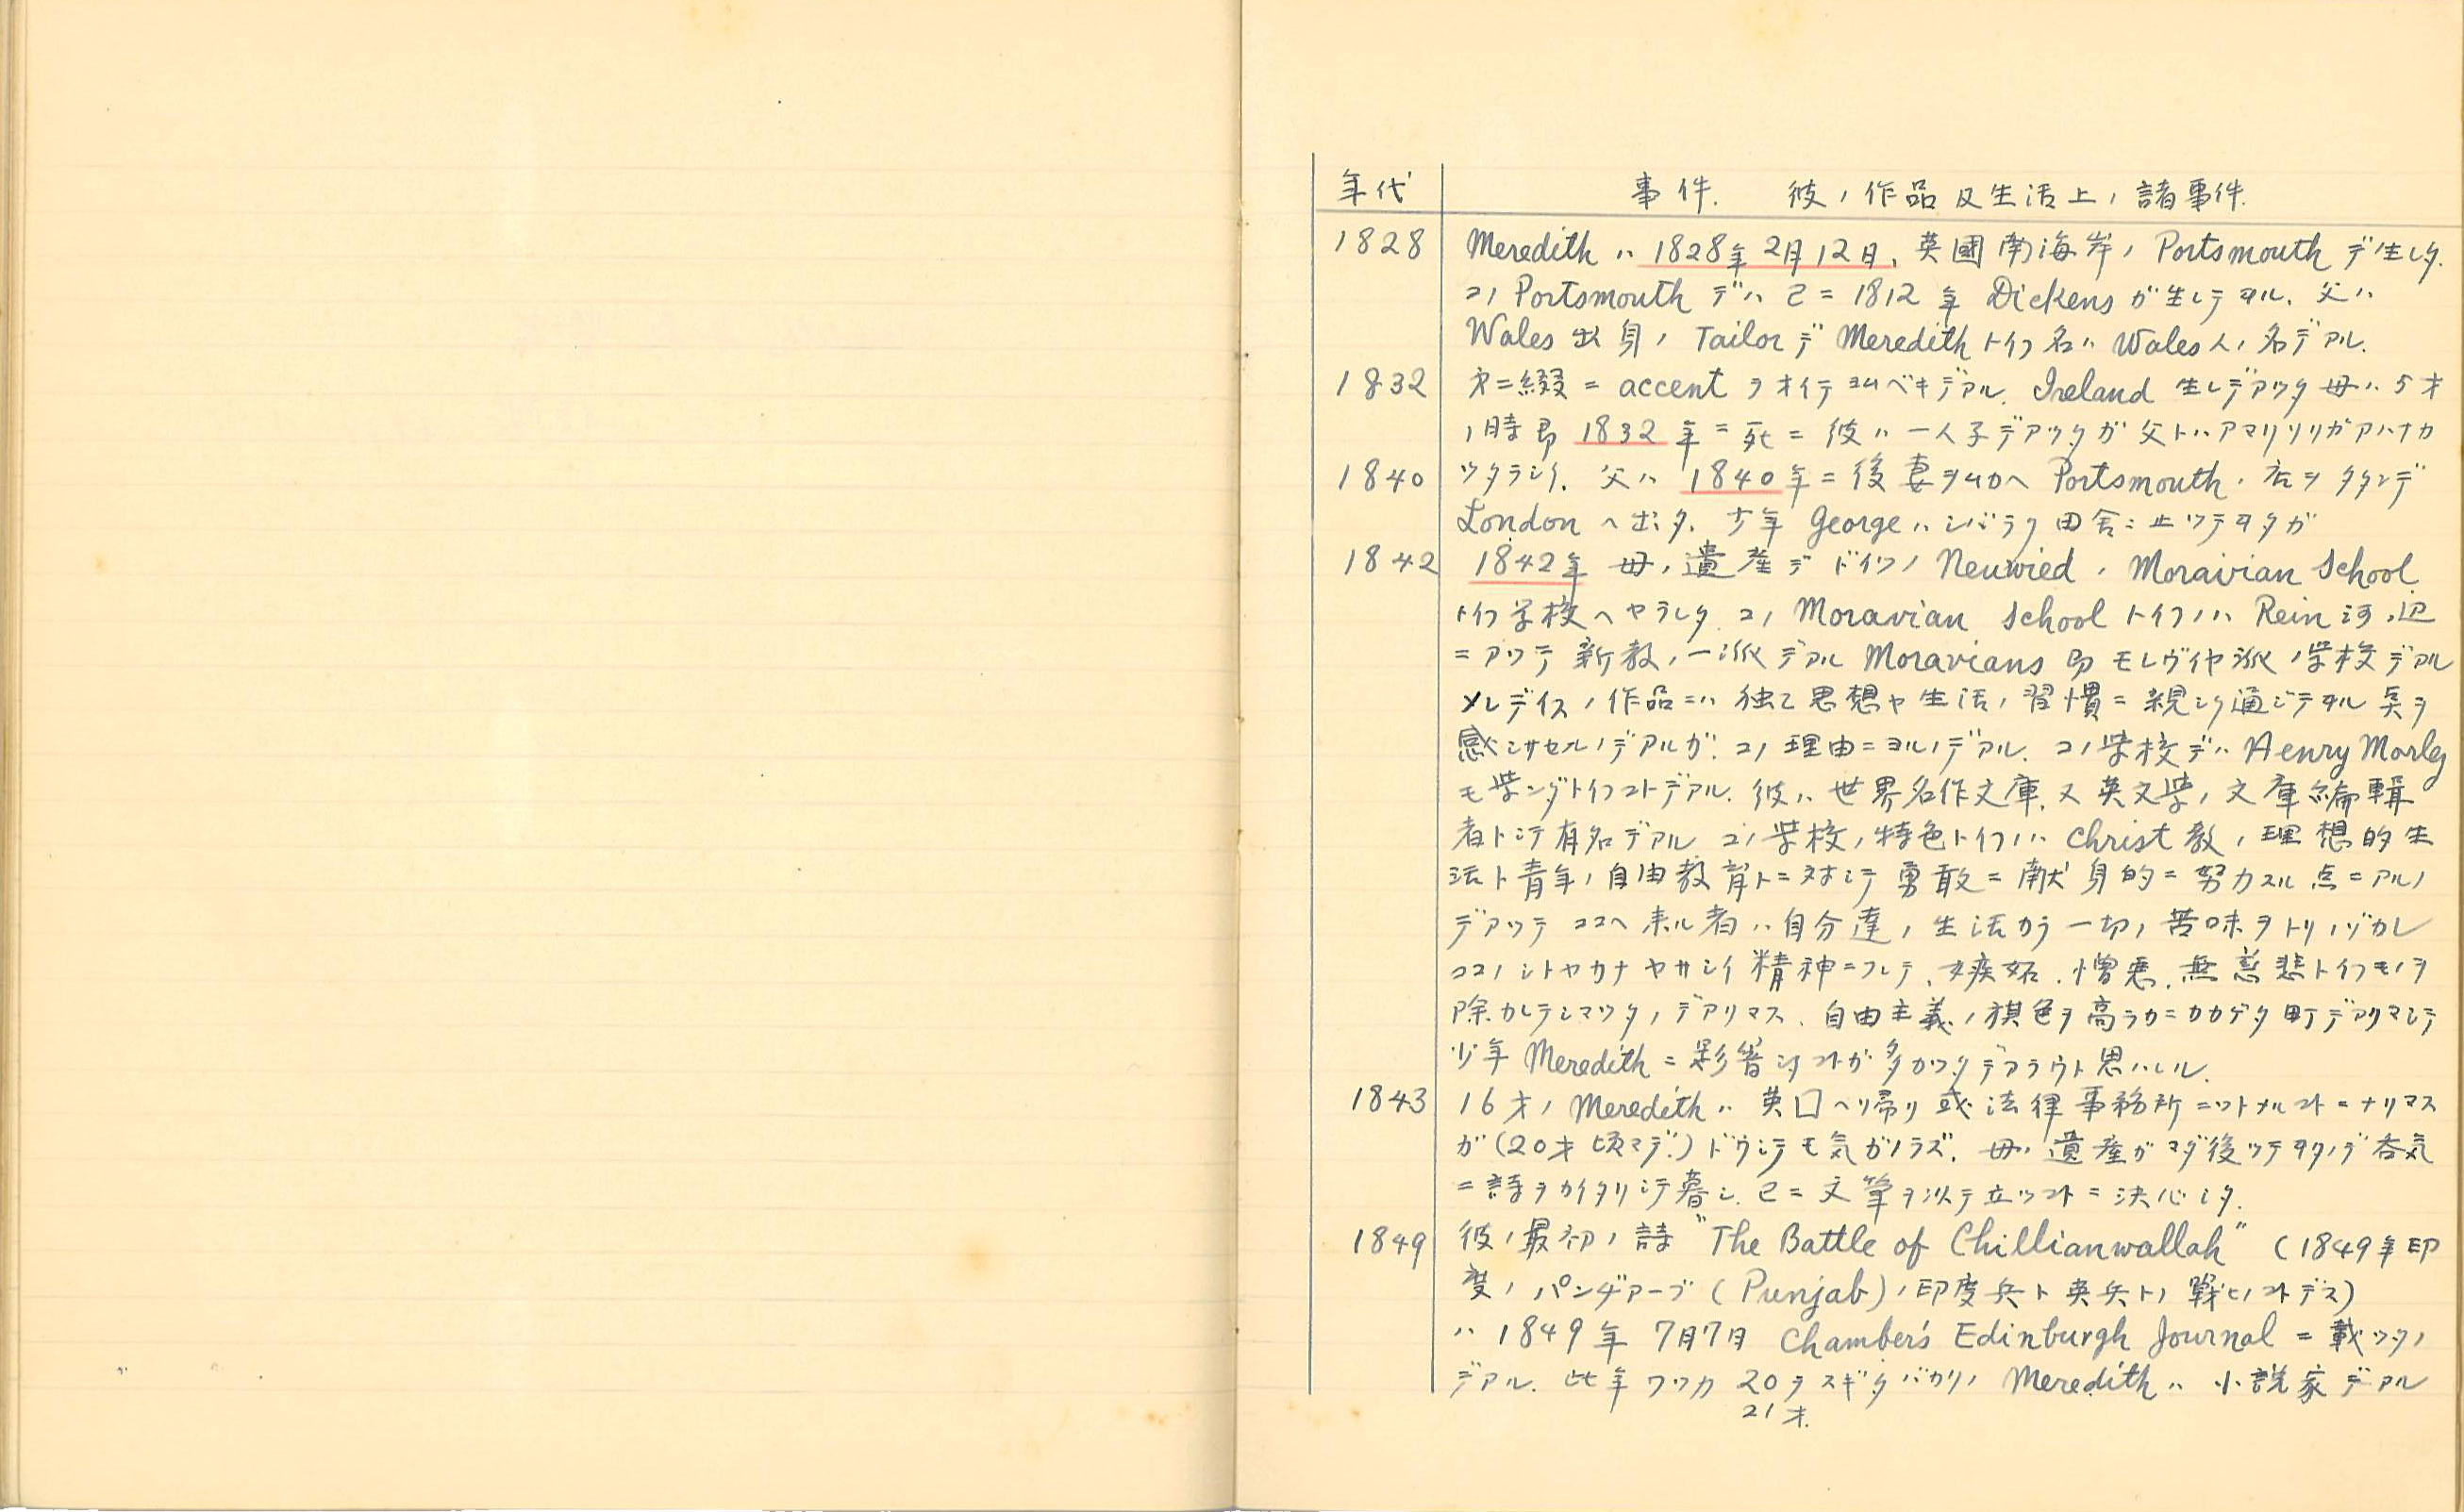 年代 事件. 彼ノ作品及生活上ノ諸事件.
1828 Meredith ハ 1828年2月12日、英國南海岸ノ Portsmouth デ生レタ.
コノ Portsmouth デハ已ニ 1812年 Dickens ガ生レテヰル. 父ハ
Wales 出身ノ Tailor デ Meredith トイフ名ハ Wales人ノ名デアル.
1832 第二綴ニ accent ヲオイテヨムベキデアル. Ireland 生レデアツタ母ハ5才
ノ時即 1832年ニ死ニ彼ハ一人子デアツタガ父トハアマリソリガアハナカ
1840 ツタラシイ. 父ハ 1840年ニ後妻ヲムカヘ Portsmouth ノ店ヲタタンデ
London ヘ出タ. 少年 George ハシバラク田舎ニ止ツテヰタガ
1842 1842年母ノ遺産デドイツノ Neuwied ノ Moravian School
トイフ学校ヘヤラレタ. コノ Moravian School トイフノハ Rein 河ノ辺
ニアツテ新教ノ一派デアル Moravians 即モレヴイヤ派ノ学校デアル
メレデイスノ作品ニハ独乙思想ヤ生活ノ習慣ニ親シク通ジテヰル点ヲ
感ジサセルノデアルガ. コノ理由ニヨルノデアル. コノ学校デハ Henry Morley
モ学ンダトイフコトデアル. 彼ハ世界名作文庫、又英文学ノ文庫編輯
者トシテ有名デアル コノ学校ノ特色トイフノハ Christ教ノ理想的生
活ト青年ノ自由教育トニ対シテ勇敢ニ献身的ニ努力スル点ニアルノ
デアツテココヘ来ル者ハ自分達ノ生活カラ一切ノ苦味ヲトリノゾカレ
ココノシトヤカナヤサシイ精神ニフレテ、嫉妬、憎悪、無慈悲トイフモノヲ
除カレテシマツタノデアリマス. 自由主義ノ旗色ヲ高ラカニカカゲタ町デアリマシテ
少年 Meredith ニ影響シタコトガ多カツタデアラウト思ハレル.
1843 16才ノ Meredith ハ英囗ヘリ帰リ或法律事務所ニツトメルコトニナリマス
ガ(20才頃マデ.)ドウシテモ気ガノラズ. 母ノ遺産ガマダ後ツテヰタノデ呑気
ニ詩ヲカイタリシテ暮シ. 已ニ文筆ヲ以テ立ツコトニ決心シタ.
1849 彼ノ最初ノ詩 "The Battle of Chillianwallah" (1849年印
度ノパンヂアーブ (Punjab) ノ印度兵ト英兵トノ戰ヒノコトデス)
ハ 1849年 7月7日 Chamber's Edinburgh Journal ニ載ツタノ
デアル. 此年ワツカ 20ヲスギタバカリノ Meredith ハ小説家デアル
21才.